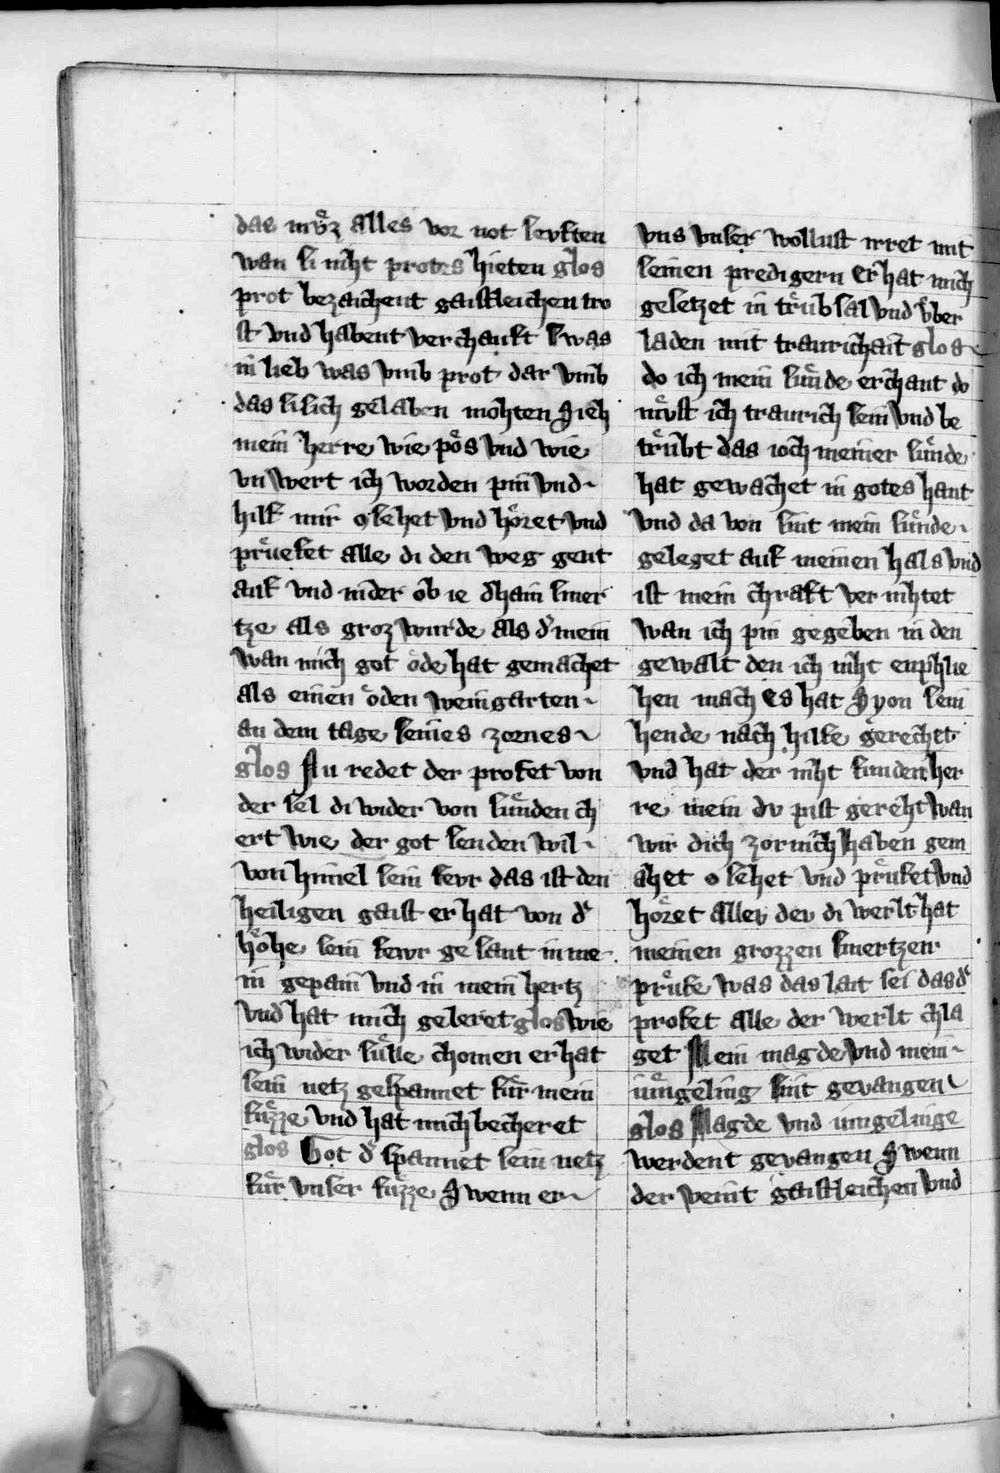 das mv̊z alles vor not sevften
wan si niht protes hieten glos
prot bezaichent gaistleichen tro
st vnd habent verchauft swas
in lieb was vmb prot dar vmb
das si sich gelaben mohten Sich
mein herre wie pos vnd wie
vnwert ich worden pin vnd
hilf mir o sehet vnd horet vnd
pruefet alle di den weg gent
auf vnd nider ob ie dhain smer
tze als groz wurde als d' mein
wan mich got ode hat gemachet
als einen oden weingarten
an dem tage seines zornes
glos Nu redet der profet von
der sel di wider von sunden ch
ert wie der got senden wil
von himel sein fevr das ist den
heiligen gaist er hat von d'
hohe sein fewr gesant in me
in gepain vnd in mein hertz
vnd hat mich geleret glos wie
ich wider sulle chomen er hat
sein netz gespannet fur mein
fuzze vnd hat mich becheret
glos Got d' spannet sein netz
fur vnser fuzze Swenn er
vns vnser wollust irret mit
seinen predigern Er hat mich
gesetzet in trubsal vnd vber
laden mit traurichait glos
do ich mein sunde erchant do
mv̊st ich traurich sein vnd be
trubt das ioch meiner sunde
hat gewachet in gotes hant
vnd da von sint mein sunde
geleget auf meinen hals vnd
ist mein chraft vernihtet
wan ich pin gegeben in den
gewalt den ich niht enphlie
hen mach Es hat Syon sein
hende nach hilfe gerechet
vnd hat der niht funden her
re mein dv pist gereht wan
wir dich zornich haben gem
ahet o sehet vnd prufet vnd
horet allev dev di werlt hat
meinen grozzen smertzen
prufe was das lait sei das d'
profet alle der werlt chla
get Mein magde vnd mein
iungeling sint gevangen
glos Magde vnd iungelinge
werdent gevangen Swenn
der veint gaistleichen vnd